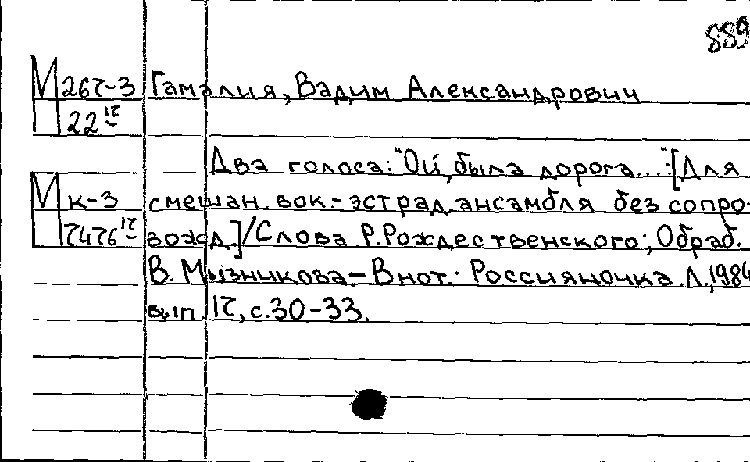 889
М 267-3 Гамалия, Вадим Александрович
22
Два голоса: "Ой, была дорога...": [Для
М к-3 смешан. вок.-эстрад. ансамбля без сопро-
7476 вожд.]/Слова Р. Рождественского; Обраб.
В. Мызникова.– В нот.: Россияночка. Л., 1984,
вып. 17, с. 30-33.